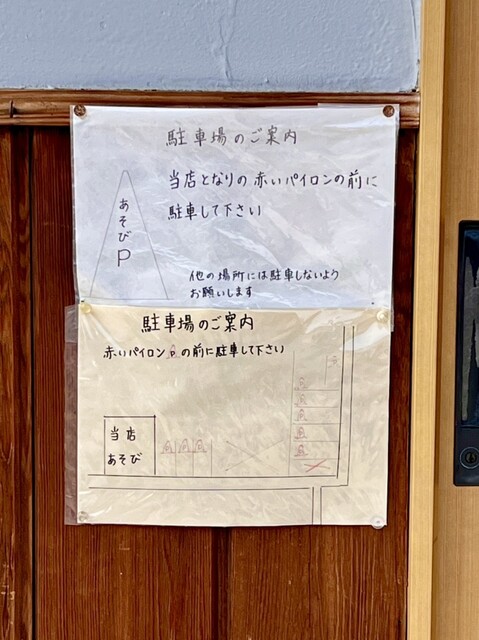 駐車場のご案内
当店となりの赤いパイロンの前に
駐車して下さい
あそび
P
他の場所には駐車しないよう
お願いします
駐車場のご案内
赤いパイロンの前に駐車して下さい
当店
あそび